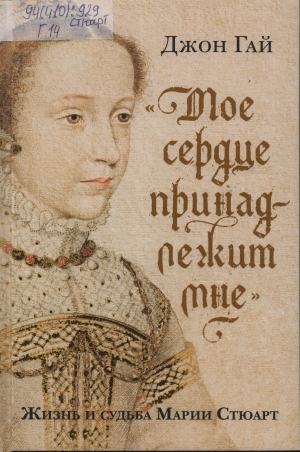 94(410):929
Г14
Стюарт
Джон Гай
«Мое
сердце
принад-
лежит
мне»
Жизнь и судьба Марии Стюарт